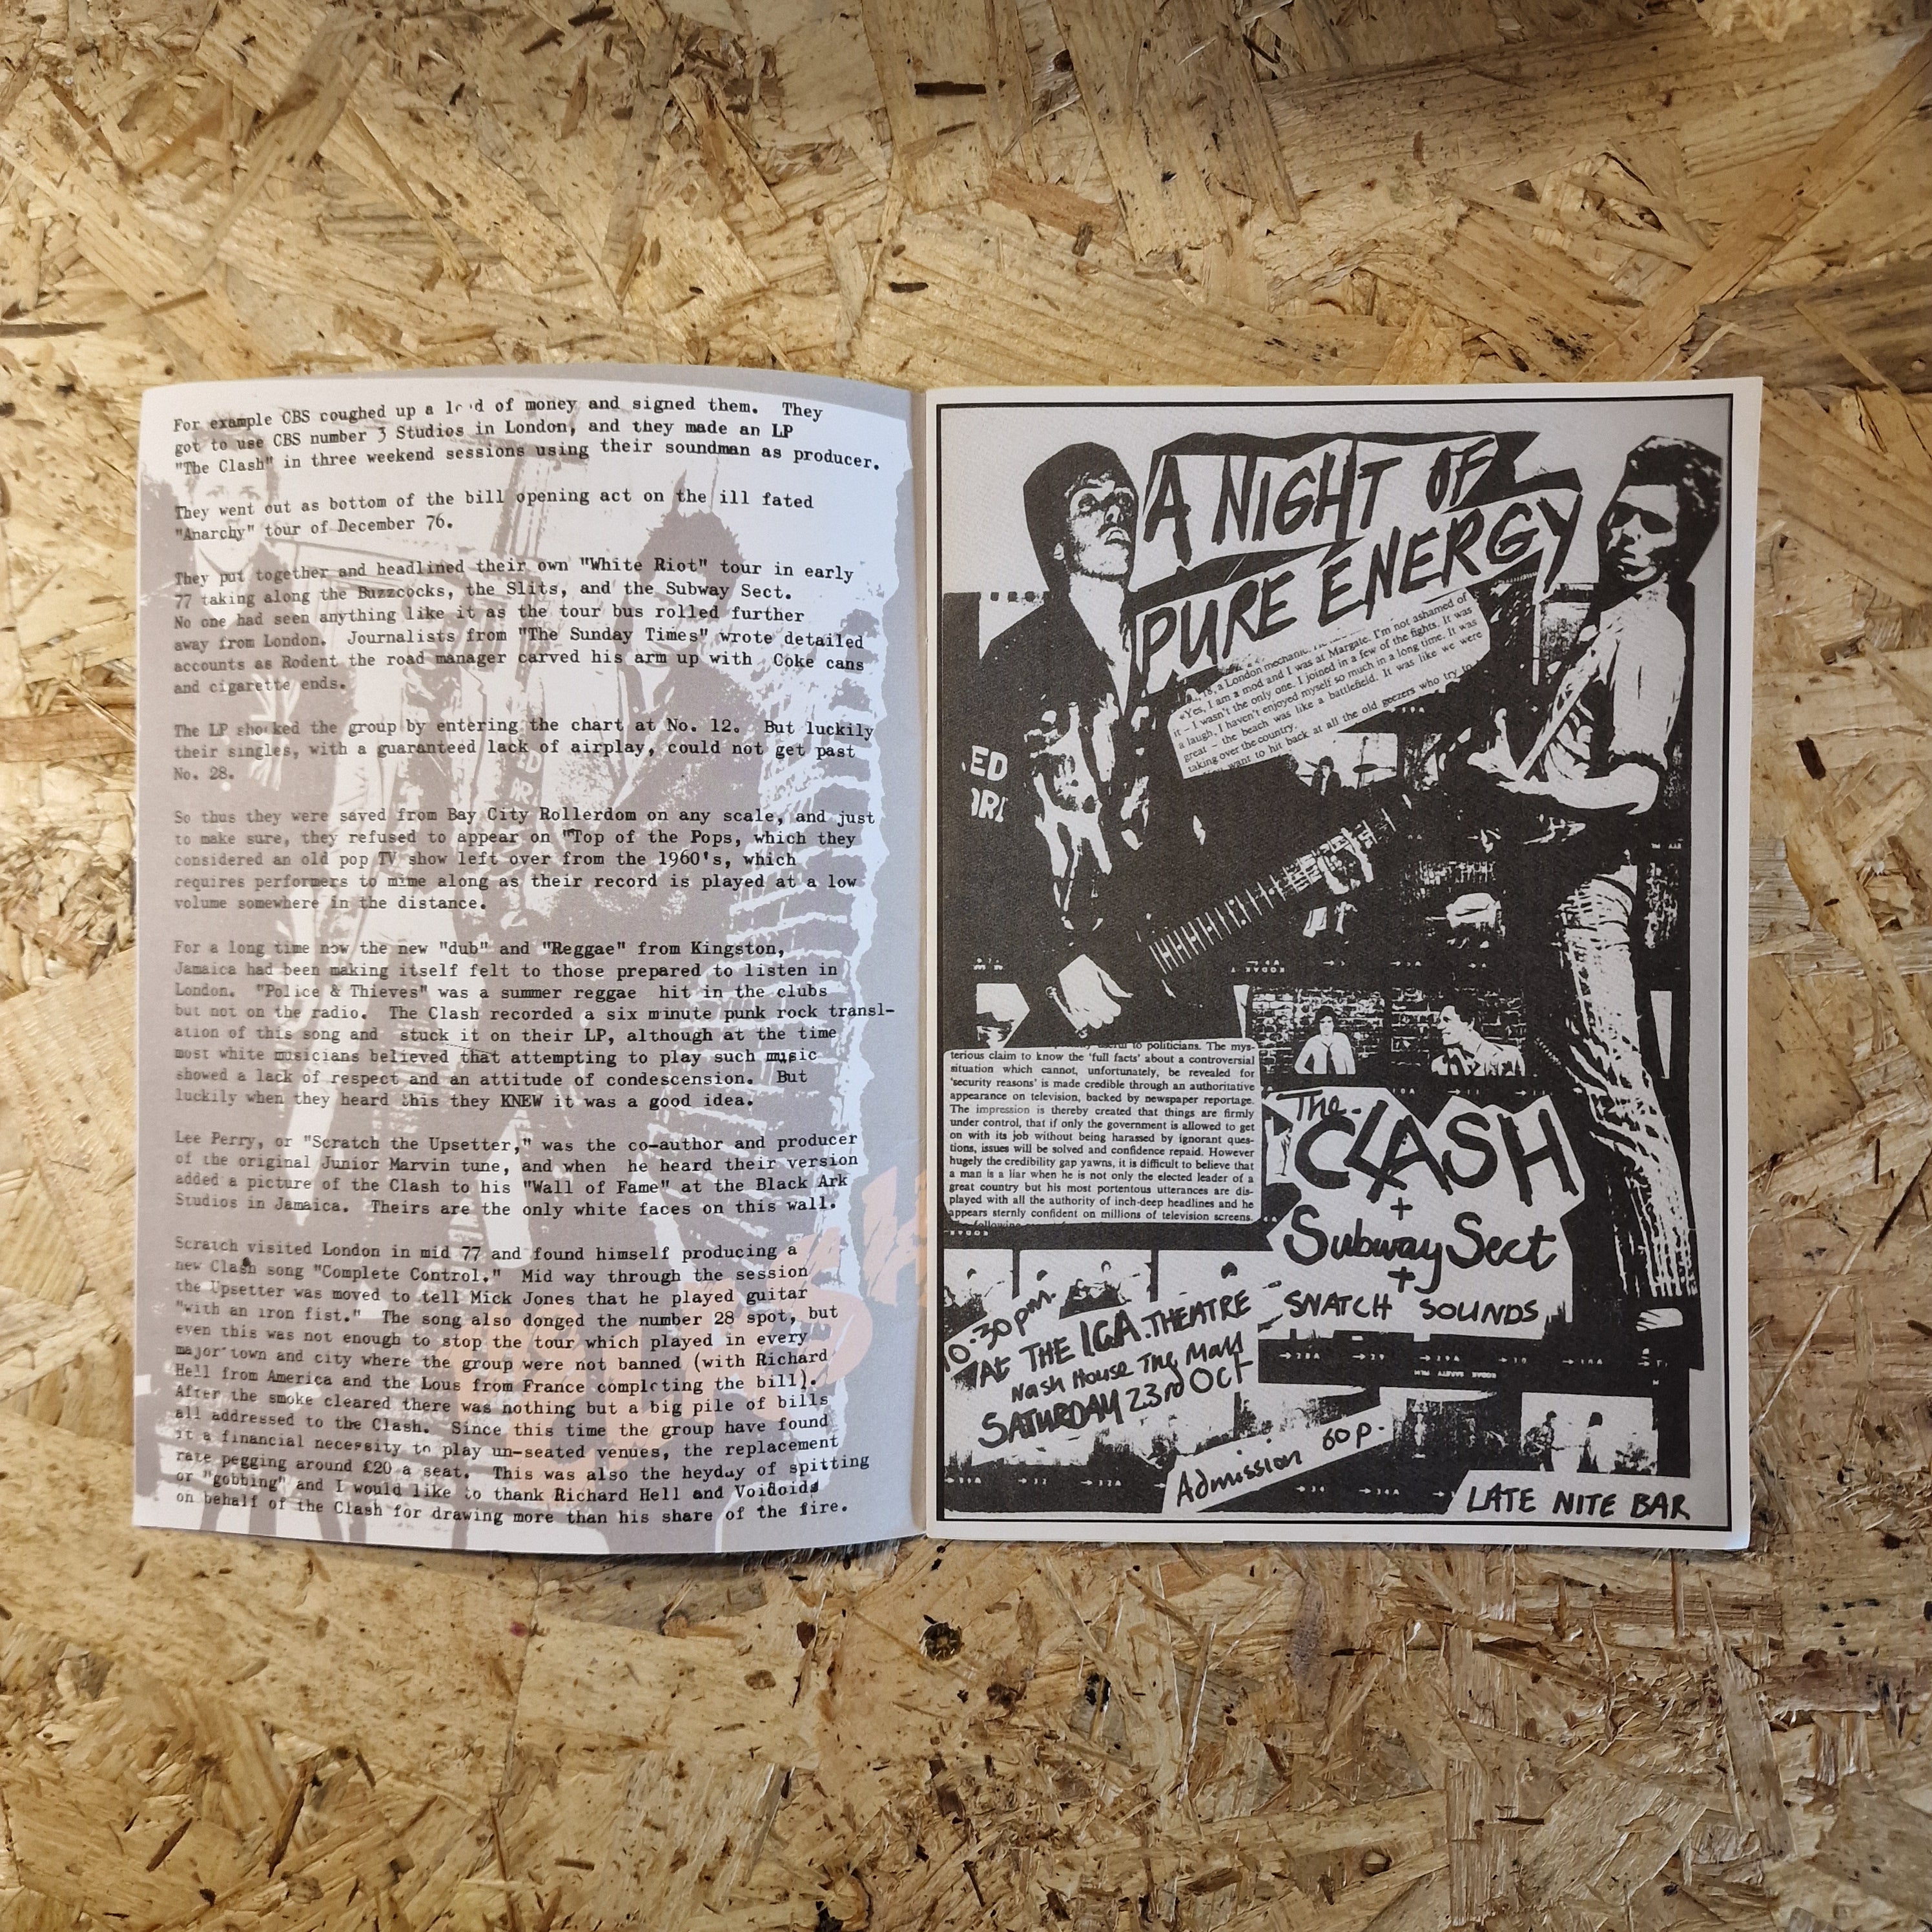 For example CBS coughed up a load of money and signed them. They
got to use CBS number 3 Studios in London, and they made an LP
"The Clash" in three weekend sessions using their soundman as producer.
They went out as bottom of the bill opening act on the ill fated
"Anarchy" tour of December 76.
They put together and headlined their own "White Riot" tour in early
77 taking along the Buzzcocks, the Slits, and the Subway Sect.
No one had seen anything like it as the tour bus rolled further
away from London. Journalists from "The Sunday Times" wrote detailed
accounts as Rodent the road manager carved his arm up with Coke cans
and cigarette ends.
The LP shocked the group by entering the chart at No. 12. But luckily
their singles, with a guaranteed lack of airplay, could not get past
No. 28.
So thus they were saved from Bay City Rollerdom on any scale, and just
to make sure, they refused to appear on "Top of the Pops, which they
considered an old pop TV show left over from the 1960's, which
requires performers to mime along as their record is played at a low
volume somewhere in the distance.
For a long time now the new "dub" and "Reggae" from Kingston,
Jamaica had been making itself felt to those prepared to listen in
London. "Police & Thieves" was a summer reggae hit in the clubs
but not on the radio. The Clash recorded a six minute punk rock transl-
ation of this song and stuck it on their LP, although at the time
most white musicians believed that attempting to play such music
showed a lack of respect and an attitude of condescension. But
luckily when they heard this they KNEW it was a good idea.
Lee Perry, or "Scratch the Upsetter," was the co-author and producer
of the original Junior Marvin tune, and when he heard their version
added a picture of the Clash to his "Wall of Fame" at the Black Ark
Studios in Jamaica. Theirs are the only white faces on this wall.
Scratch visited London in mid 77 and found himself producing a
new Clash song "Complete Control." Mid way through the session
the Upsetter was moved to tell Mick Jones that he played guitar
"with an iron fist." The song also donged the number 28 spot, but
even this was not enough to stop the tour which played in every
major town and city where the group were not banned (with Richard
Hell from America and the Lous from France completing the bill).
After the smoke cleared there was nothing but a big pile of bills
all addressed to the Clash. Since this time the group have found
it a financial necessity to play un-seated venues, the replacement
rate pegging around £20 a seat. This was also the heyday of spitting
or "gobbing" and I would like to thank Richard Hell and Voidoids
on behalf of the Clash for drawing more than his share of the fire.
A NIGHT OF
PURE ENERGY
18, a London mechanic.
"Yes, I am a mod and I was at Margate. I'm not ashamed of
it – I wasn't the only one. I joined in a few of the fights. It was
a laugh, I haven't enjoyed myself so much in a long time. It was
great – the beach was like a battlefield. It was like we were
taking over the country.
want to hit back at all the old geezers who try to
ED
ORL
to politicians. The mys-
terious claim to know the 'full facts' about a controversial
situation which cannot, unfortunately, be revealed for
'security reasons' is made credible through an authoritative
appearance on television, backed by newspaper reportage.
The impression is thereby created that things are firmly
under control, that if only the government is allowed to get
on with its job without being harassed by ignorant ques-
tions, issues will be solved and confidence repaid. However
hugely the credibility gap yawns, it is difficult to believe that
a man is a liar when he is not only the elected leader of a
great country but his most portentous utterances are dis-
played with all the authority of inch-deep headlines and he
appears sternly confident on millions of television screens.
The following
The
CLASH
+
Subway Sect
+
SNATCH SOUNDS
10.30pm.
AT THE ICA. THEATRE
Nash House The Mall
SATURDAY 23rd OCT
Admission 60p.
LATE NITE BAR